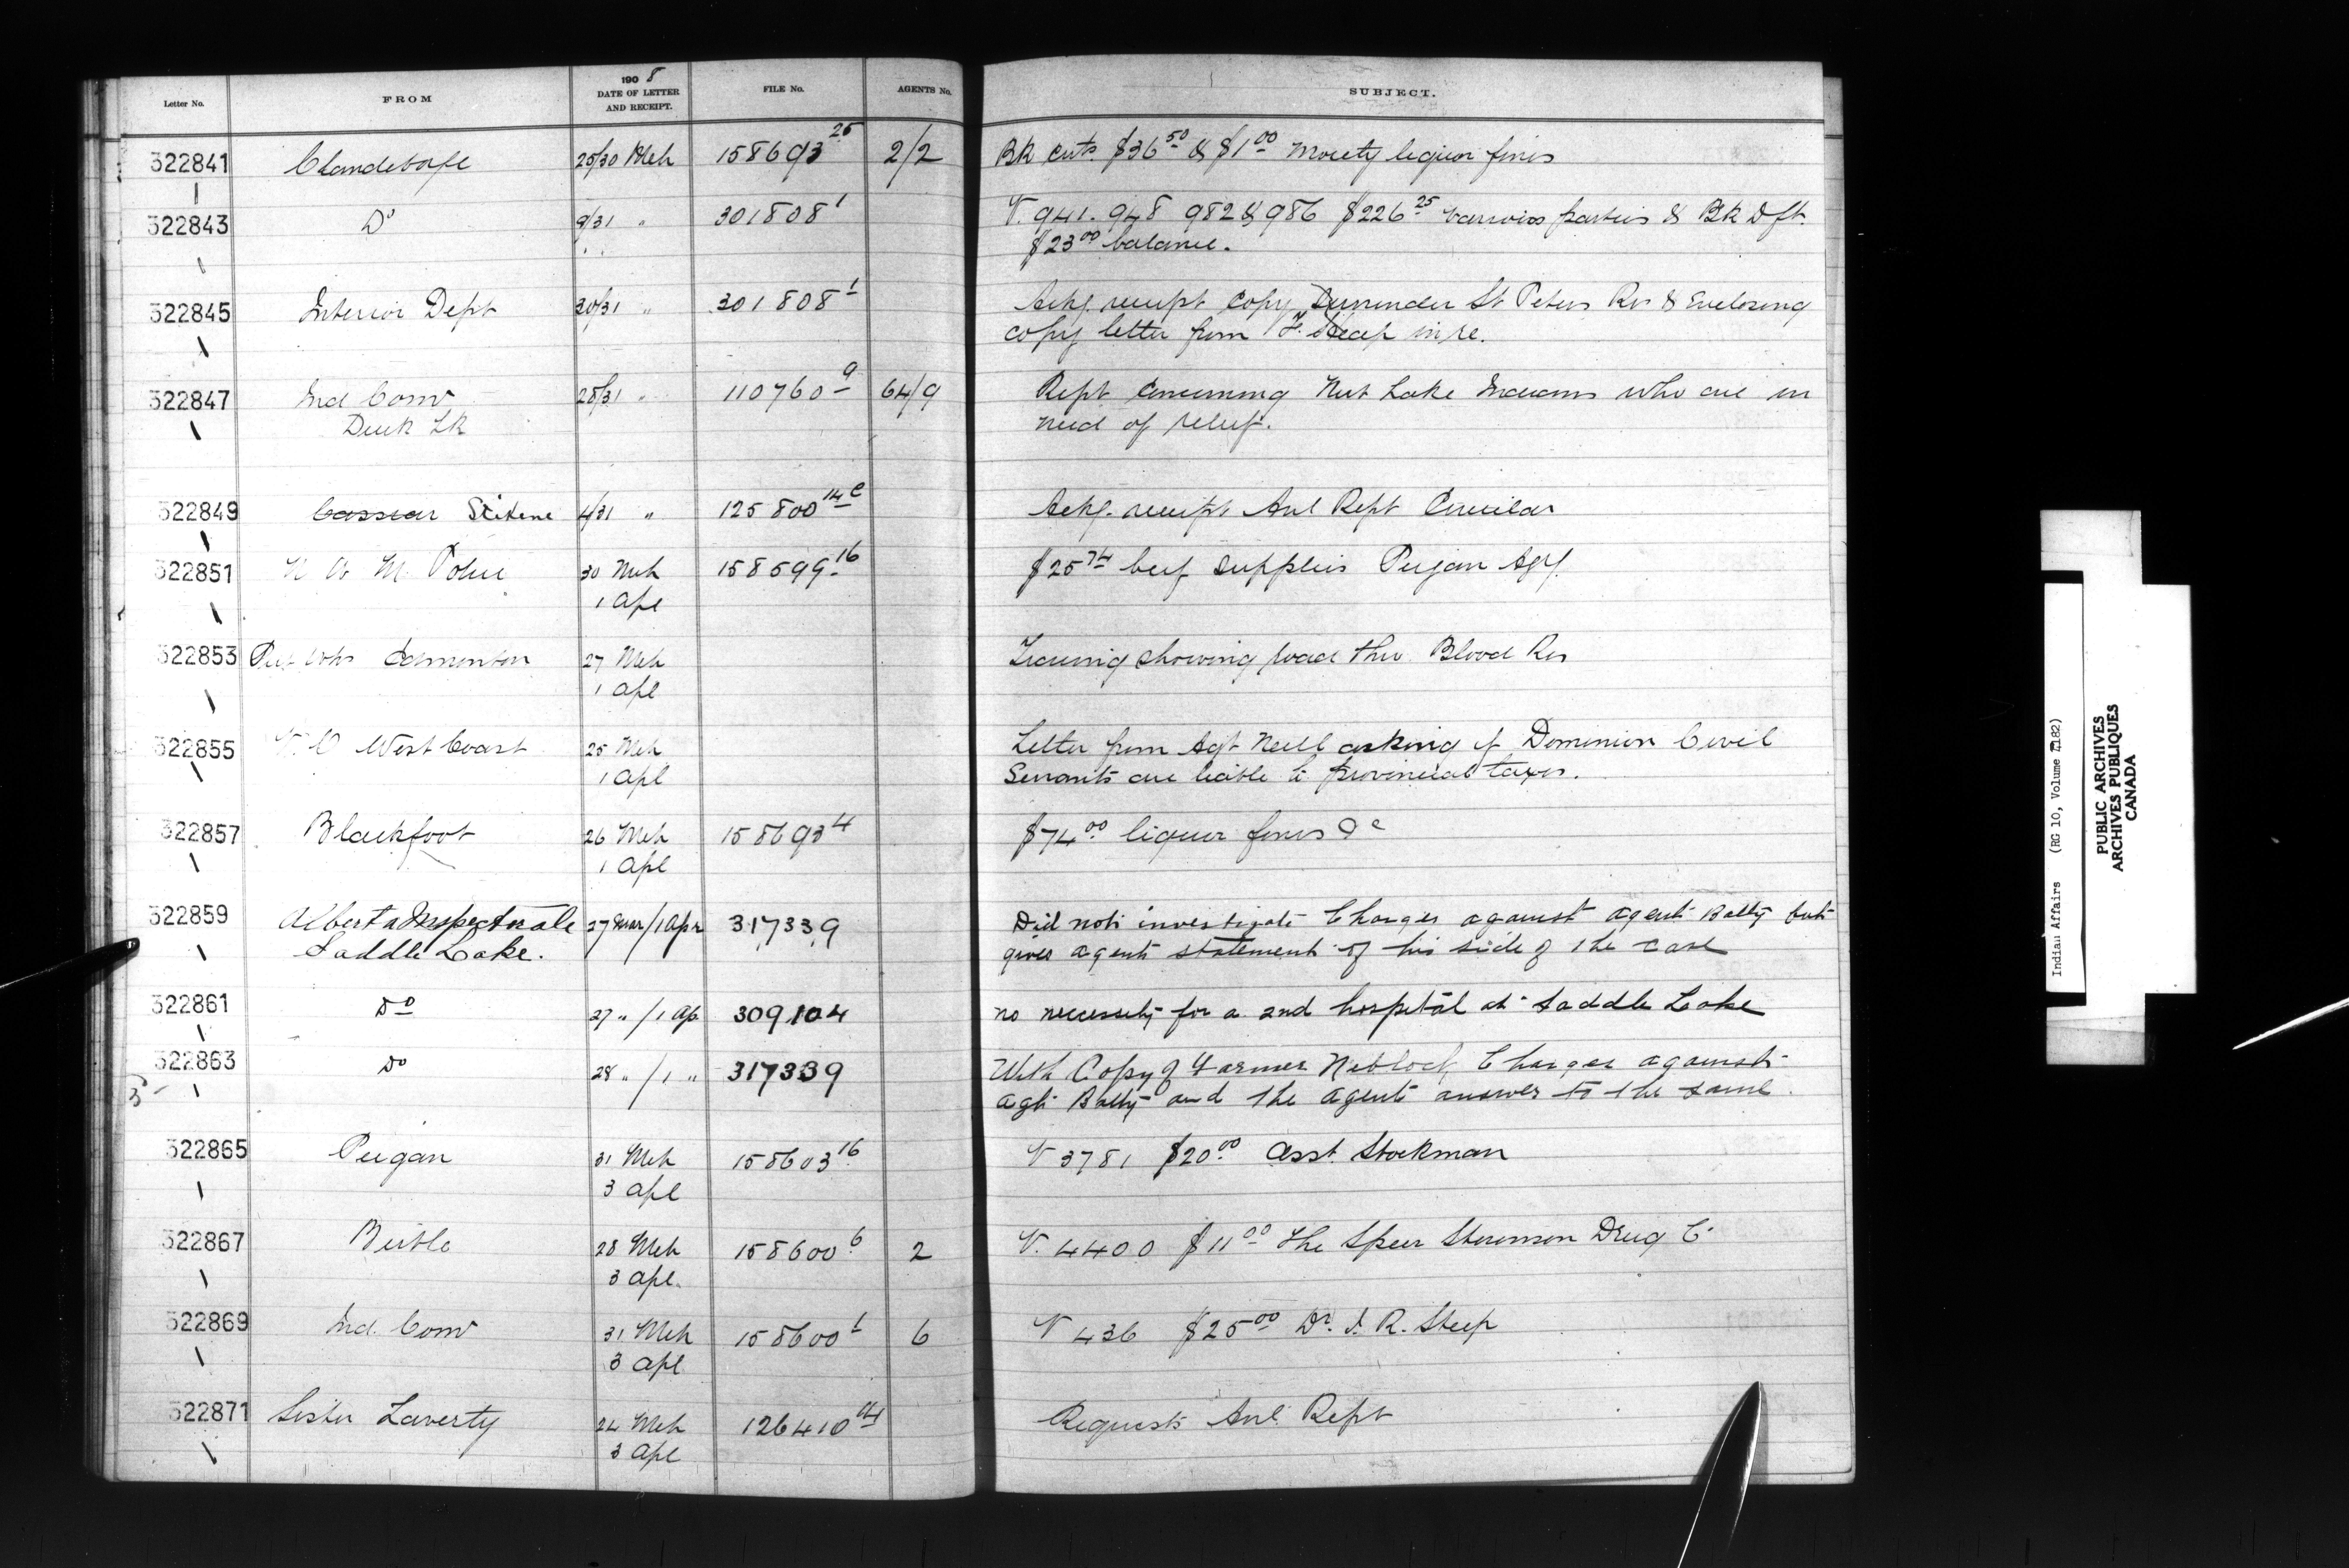 Letter No. FROM 1908 DATE OF LETTER AND RECEIPT. FILE No. AGENTS No. SUBJECT.
322841 Clandeboye 25/30 Mch 158693 25 2/2 Bk certs. $36 50 & $1 00 Moiety liquor fines
322843 Do 9/31 " 301808 1 V. 941. 948 982 & 986 $226 25 various parties & Bk Dft.
$23 00 balance.
322845 Interior Dept 30/31 " 301808 1 Ackg. receipt copy Surrender St Peters Res & Enclosing
copy letter from F. Heap in re.
322847 Ind Comr 28/31 " 110760 9 64/9 Rept Concerning Nut Lake Indians who are in
Duck Lk need of relief.
322849 Cassiar Stikene 4/31 " 125800 14 c Ackg. receipt Anl Rept Circular
322851 N W M. Police 30 Mch 158599 16 $25 74 beef supplies Peigan Agy.
1 Apl
322853 Pub Wks Edmonton 27 Mch Tracing showing road thro Blood Res
1 Apl
322855 V. O West Coast 25 Mch Letter from Agt Neill asking if Dominion Civil
1 Apl Servants are liable to provincial taxes.
322857 Blackfoot 26 Mch 158693 4 $74 00 liquor fines &c
1 Apl
322859 Alberta Inspectorate 27 Mar/1 Apr 317339 Did not investigate Charges against agent Batty but
Saddle Lake. gives agents statement of his side of the case
322861 Do 27 " / 1 Ap 309104 no necessity for a 2nd hospital at Saddle Lake
322863 Do 28 " / 1 " 317339 With Copy of Farmer Niblock Charges against
Agt Batty and the agents answer to the same.
322865 Peigan 31 Mch 158603 16 V 3781 $20 00 Asst. Stockman
3 Apl
322867 Birtle 28 Mch 158600 6 2 V. 4400 $11 00 The Speer Stevenson Drug C
3 Apl.
322869 Ind. Comr 31 Mch 158600 1 6 V 436 $25 00 Dr. J. R. Steep
3 Apl
322871 Sister Laverty 24 Mch 126410 14 Requests Anl. Rept
3 Apl
Indian Affairs (RG 10, Volume 7182)
PUBLIC ARCHIVES
ARCHIVES PUBLIQUES
CANADA